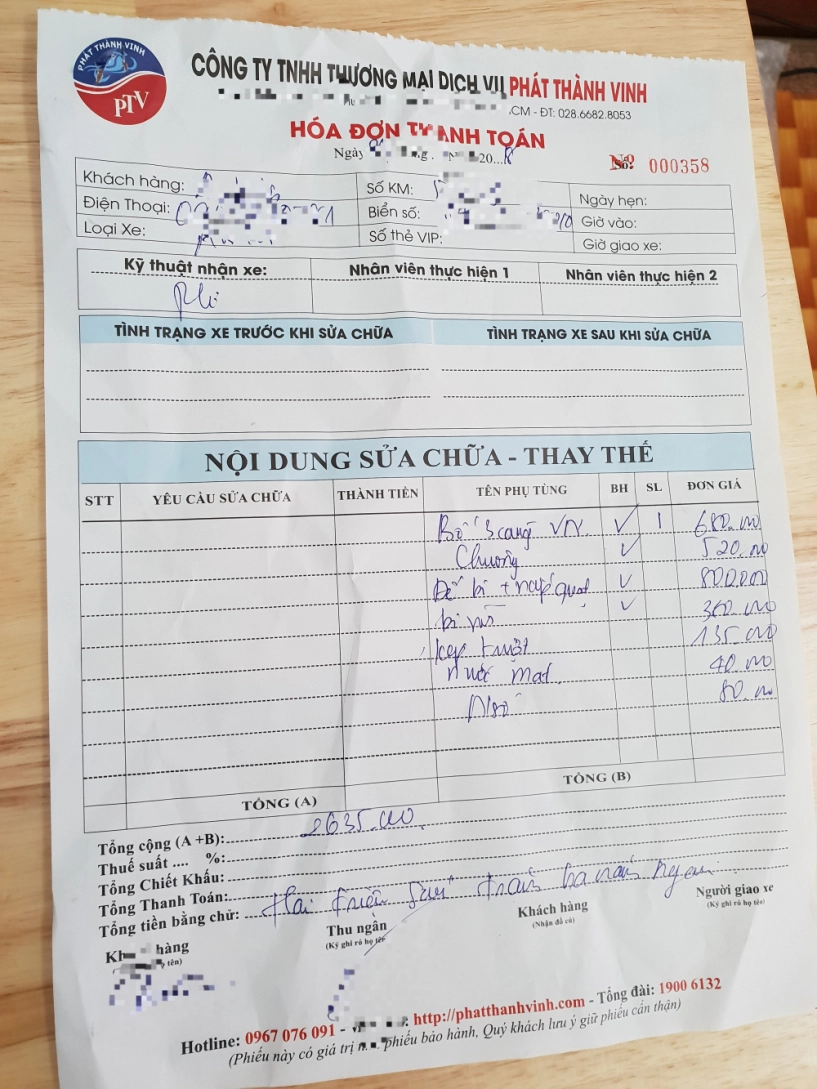 PHÁT THÀNH VINH
PTV
CÔNG TY TNHH THƯƠNG MẠI DỊCH VỤ PHÁT THÀNH VINH
.CM - ĐT: 028.6682.8053
HÓA ĐƠN THANH TOÁN
Ngày 20...8
Nº 000358
Khách hàng: Số KM: Ngày hẹn:
Điện Thoại: Biển số: Giờ vào:
Loại Xe: Số thẻ VIP: Giờ giao xe:
Kỹ thuật nhận xe: Nhân viên thực hiện 1 Nhân viên thực hiện 2
TÌNH TRẠNG XE TRƯỚC KHI SỬA CHỮA TÌNH TRẠNG XE SAU KHI SỬA CHỮA
NỘI DUNG SỬA CHỮA - THAY THẾ
STT YÊU CẦU SỬA CHỮA THÀNH TIỀN TÊN PHỤ TÙNG BH SL ĐƠN GIÁ
Bố 3 càng VN ✓ 1 680.000
Chuông ✓ 520.000
Đế bi + quạt ✓ 800.000
bi ✓ 360.000
135.000
nước mát 40.000
Nhớt 80.000
TỔNG (A) TỔNG (B)
Tổng cộng (A +B): 2635.000
Thuế suất .... %:
Tổng Chiết Khấu:
Tổng Thanh Toán:
Tổng tiền bằng chữ: Hai triệu sáu trăm ba năm ngàn
Khách hàng Thu ngân Khách hàng Người giao xe
tên) (Ký ghi rõ họ tên (Nhận đồ cũ) (Ký ghi rõ họ tên)
Hotline: 0967 076 091 - : http://phatthanhvinh.com - Tổng đài: 1900 6132
(Phiếu này có giá trị phiếu bảo hành, Quý khách lưu ý giữ phiếu cẩn thận)